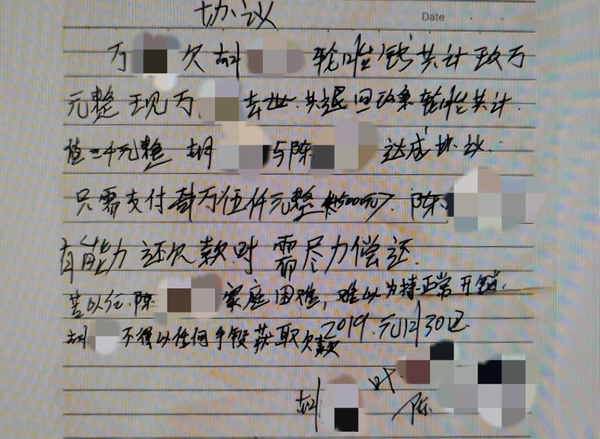 协议
Date
万 欠胡 轮胎钱共计玖万
元整 现万 去世.共退回 轮胎共计
值二千元整 胡 与陈 达成协议
只需支付 万伍仟元整 陈
有能力还欠款时 需尽力偿还.
若以后.陈 家庭困难,难以为持正常开销.
胡 不得以任何手段获取欠款 2019. 12月30日
胡 叶
陈